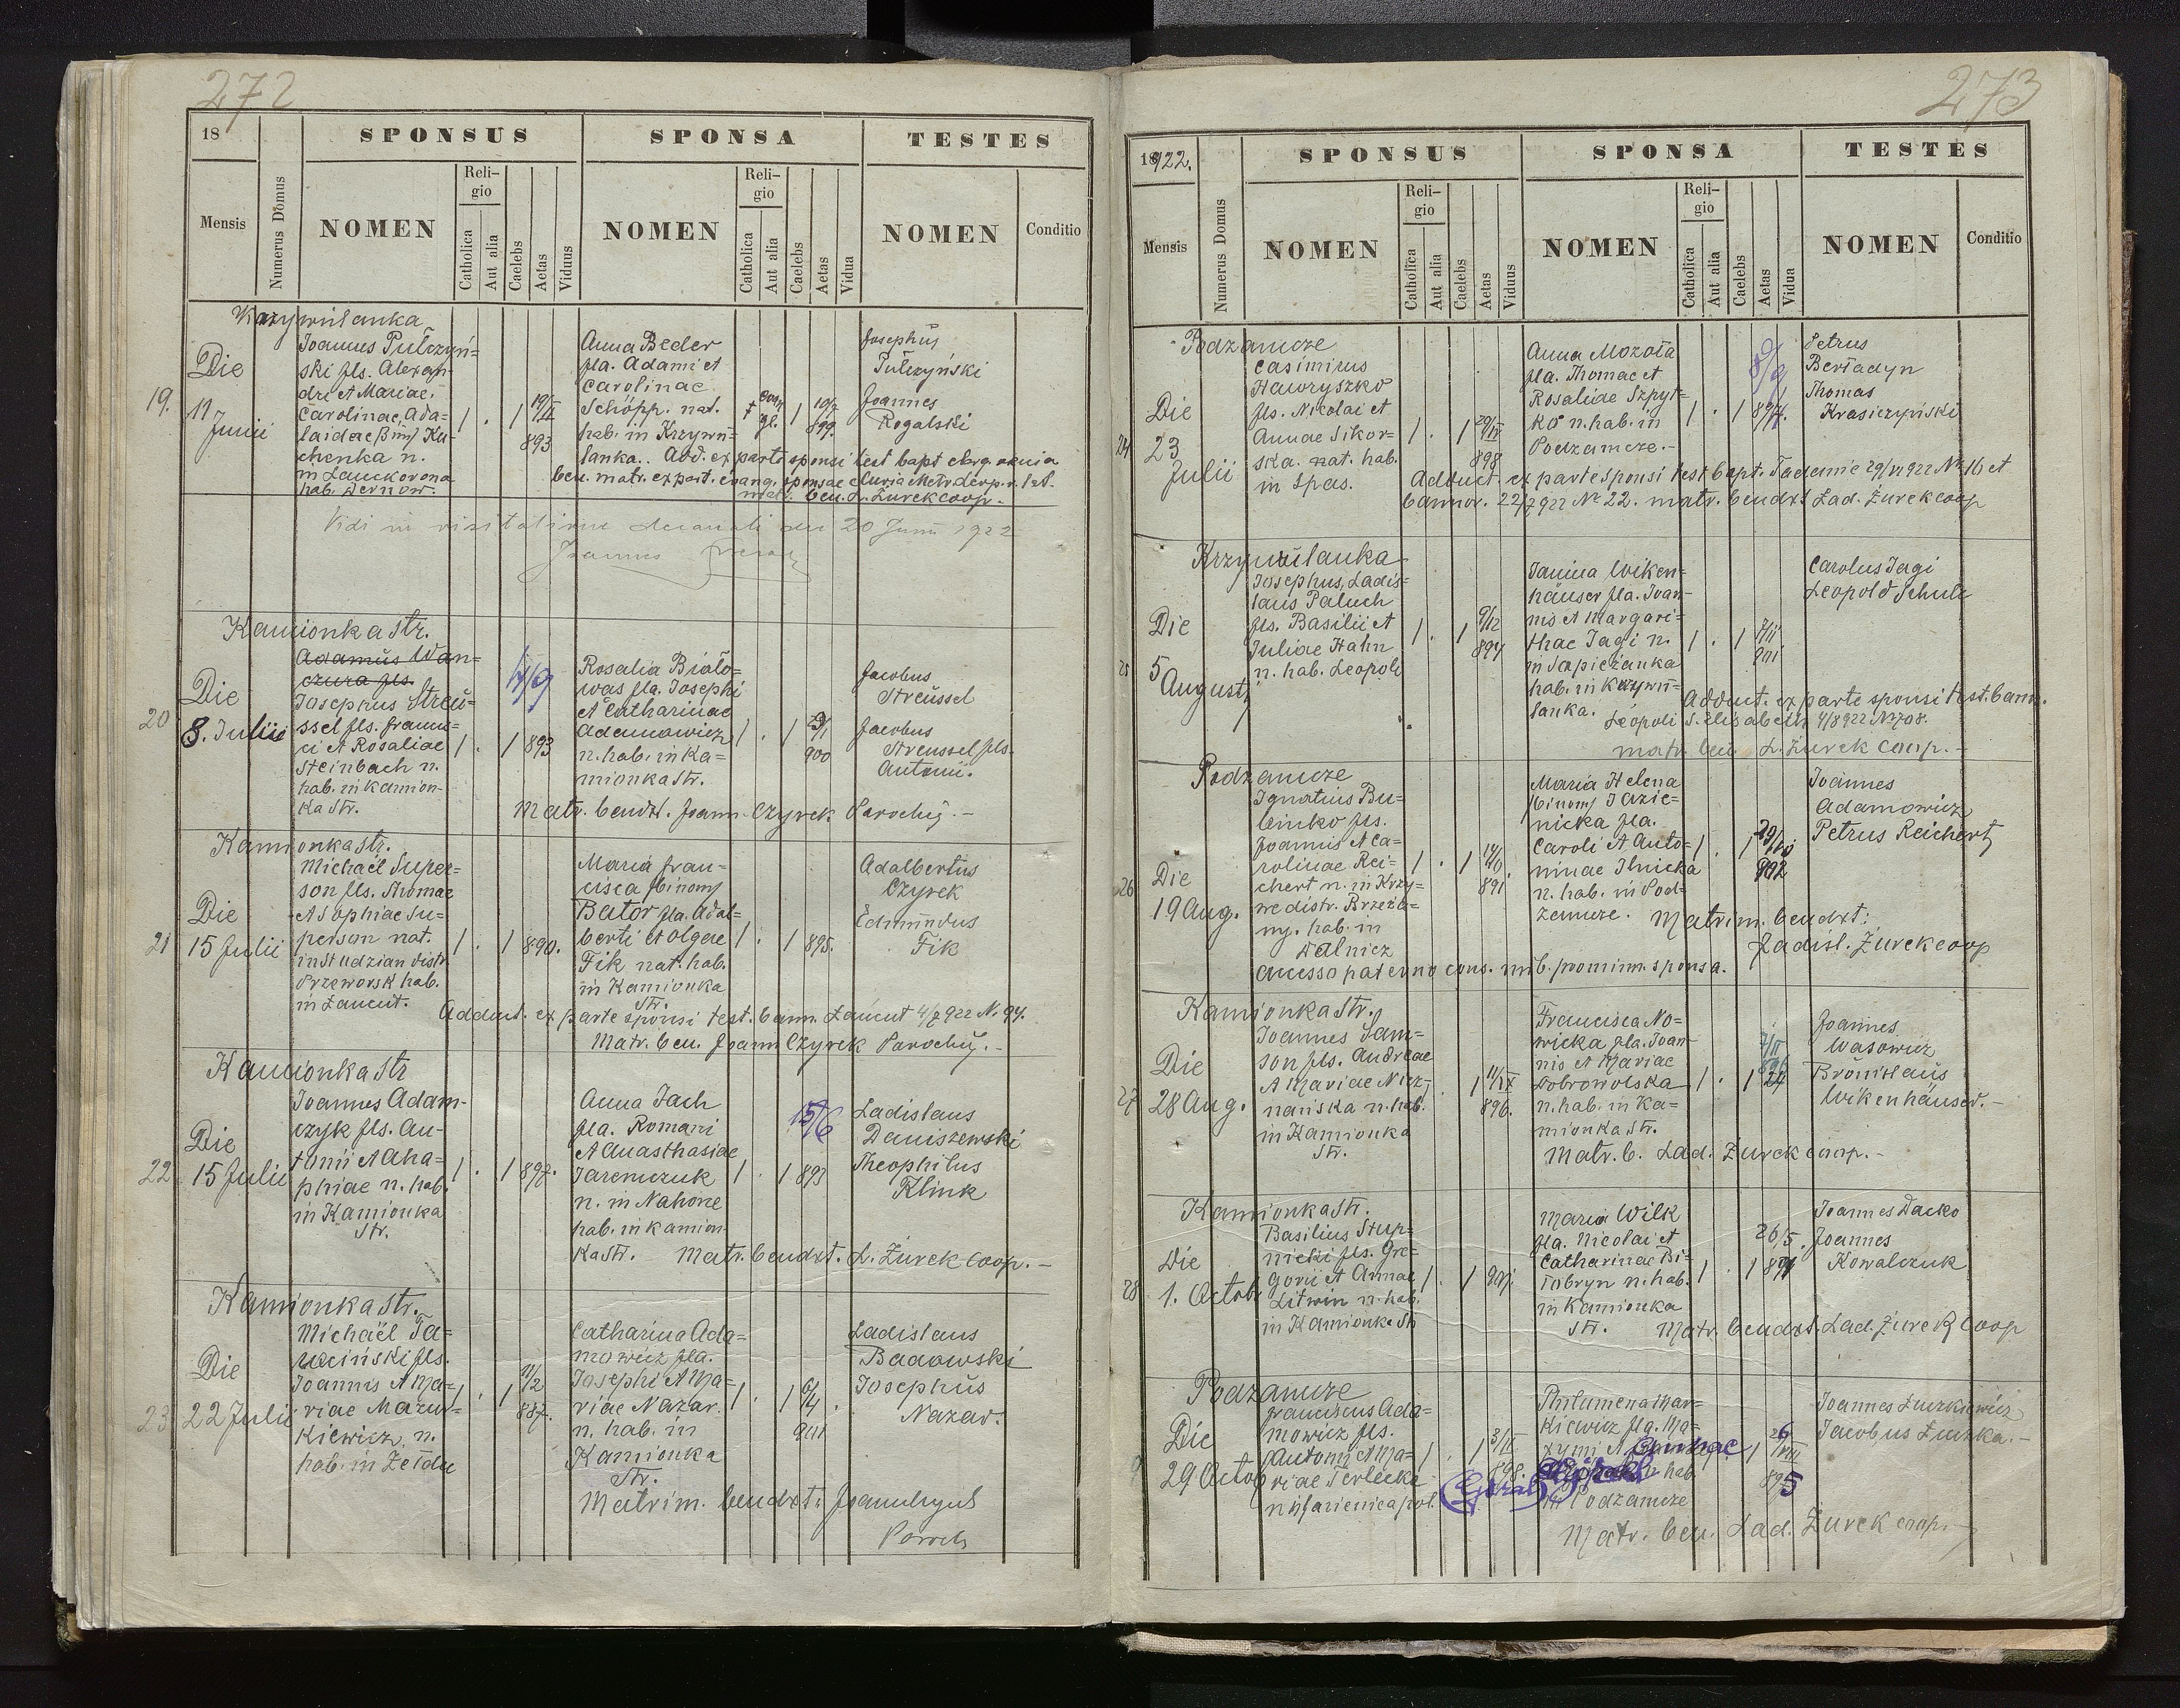 272
18
SPONSUS
SPONSA
TESTES
Mensis
Numerus Domus
NOMEN
Religio
Catholica
Aut alia
Caelebs
Aetas
Viduus
NOMEN
Religio
Catholica
Aut alia
Caelebs
Aetas
Vidua
NOMEN
Conditio
19.
Die
11
Junii
Joannes Pułczyń=
ski fls. Alexan-
dri et Mariae,
Carolinae, Ada=
laidae
chenka n.
in Lanckorona
hab. Dernów.
1 . 1 19/II
893
Anna Beder
fla. Adami et
Carolinae
Schöpp. nat.
hab. in Krzywu=
lanka.. Add. ex parte sponsi test bapt
1 10/7
899.
Josephus
Pułczyński
Joannes
Rogalski
ben. matr. ex part. evang. sponsae
ben. L. Żurek coop.-
Vidi in visitatione decanali die 20 Junii 1922
Joannes
Kamionka Str.
20
Die
8. Julii
Adamus Wan=
czura fls.
Josephus Streu=
ssel fls. Franci=
ci et Rosaliae
Steinbach n.
hab. in Kamion-
ka Str.
1 . 1 893
Rosalia Biało=
was fla. Josephi
et Catharinae
Adamowicz
n. hab. in Ka=
mionka Str.
1 . 1
900
Jacobus
Streussel
Jacobus
Streussel fls.
Antonii.
Matr. bendxt. Joann. Czyrek Parochus.-
Kamionka Str.
21
Die
15 Julii
Michaël Super=
son fls. Thomae
et Sophiae Su=
person nat.
in Studzian distr.
Przeworsk hab.
in Łańcut.
1 . 1 890.
Maria Fran=
cisca (binom)
Bator fla. Adal=
berti et Olgae
Fik nat. hab.
in Kamionka
Str.
1 . 1 895.
Adalbertus
Czyrek
Edmundus
Fik
Adduct. ex parte sponsi test. bann. Łańcut 4/7 922 N. 94.
Matr. ben. Joann Czyrek Parochus.-
Kamionka Str
22
Die
15 Julii
Joannes Adam-
czyk fls. An=
tonii et Aga=
phiae n. hab.
in Kamionka
Str.
1 . 1 897.
Anna Jach
fla. Romani
et Anasthasiae
Jaremczuk
n. in Nahorce
hab. in Kamion-
ka Str.
15/6
1 . 1 893
Ladislaus
Daniszewski
Theophilus
Klink
Matr. bendxt. L. Żurek coop.-
Kamionka Str.
23
Die
22 Julii
Michaël Ja=
fls.
Joannis et Ma=
riae Mazur=
kiewicz, n.
hab. in Żełdec
1 . 1 11/2
887.
Catharina Ada=
mowicz fla.
Josephi et Ma=
riae Nazar.
n. hab. in
Kamionka
Str.
1 . 1 6/4
901
Ladislaus
Badowski
Josephus
Nazar.
Matrim. bendxt:
Paroch
273
1922.
SPONSUS
SPONSA
TESTES
Mensis
Numerus Domus
NOMEN
Religio
Catholica
Aut alia
Caelebs
Aetas
Viduus
NOMEN
Religio
Catholica
Aut alia
Caelebs
Aetas
Vidua
NOMEN
Conditio
Podzamcze
24
Die
23
Julii
Casimirus
Hawryszko
fls. Nicolai et
Annae Sikor=
ska. nat. hab.
in Spas.
1 . 1
898
Anna Mozoła
fla. Thomae et
Rosaliae Szpyt=
ko n. hab. in
Podzamcze.-
1 . 1 897.
Petrus
Berładyn
Thomas
Krasiczyński
Adduct. ex parte sponsi test bapt. Tadanie 29/VI 922 No 16 et
bannor. 22/7 922 No 22. matr. bendxt Lad. Żurek coop
Krzywulanka
25
Die
5
Augusti
Josephus, Ladis=
laus Paluch
fls. Basilii et
Juliae Hahn
n. hab. Leopoli
1 . 1 9/12
894
Janina Wiken=
häuser fla. Joan-
nis et Margari=
thae Jagi n.
in Sapieżanka
hab. in Krzywu=
lanka.
1 . 1
901
Carolus Jagi
Leopold Schulz
Adduct. ex parte sponsi test. bann.
Leopoli S. Elisabeth 4/8 922 No 708.
matr. ben. L. Żurek coop.-
Podzamcze
26
Die
19 Aug.
Ignatius Bu=
binko fls.
Joannis et Ca=
rolinae Rei=
chert n. in Krzy=
we distr. Brzeża=
ny. hab. in
Dalnicz
1 . 1
891.
Maria Helena
(binom) Jazie=
nicka fla.
Caroli et Anto=
ninae Ilnicka
n. hab. in Pod=
zamcze.
1 . 1
902
Joannes
Adamowicz
Petrus Reichert
Matrim. bendxt:
Ladisl. Żurek coop
accesso paterno cons. sponsa.
Kamionka Str.
27
Die
28 Aug.
Joannes Sam=
son fls. Andreae
et Mariae Niez=
nańska n. hab.
in Kamionka
Str.
1 11/IX
896.
Francisca No=
wicka fla. Joan-
nis et Mariae
Dobrowolska
n. hab. in Ka=
mionka Str.
1 . 1
Joannes
Wąsowicz
Bronislaus
Wikenhäuser.-
Matr. b. Lad. Żurek coop.-
Kamionka Str.
28
Die
1. Octobr
Basilius Stup=
nicki fls. Gre=
gorii et Annae
Litwin n. hab.
in Kamionka Str
1 . 1 901
Maria Wilk
fla. Nicolai et
Catharinae Bi=
łobryn n. hab.
in Kamionka
Str.
26/5.
1 . 1 891
Joannes Dacko
Joannes
Kowalczuk
Matr. bendxt. Lad. Żurek coop
Podzamcze
Die
29 Octob
Franciscus Ada=
mowicz fls.
Antonii et Ma=
riae Terlecka
1 . 1 3/II
898.
Philumena Mar=
kiewicz fla. Ma=
xymi et Annae
Góral n. hab.
in Podzamcze
1 26/VIII
895
Joannes Łuczkiewicz
Jacobus Łuczka.-
Góral
Matr. ben. Lad. Żurek coop.-